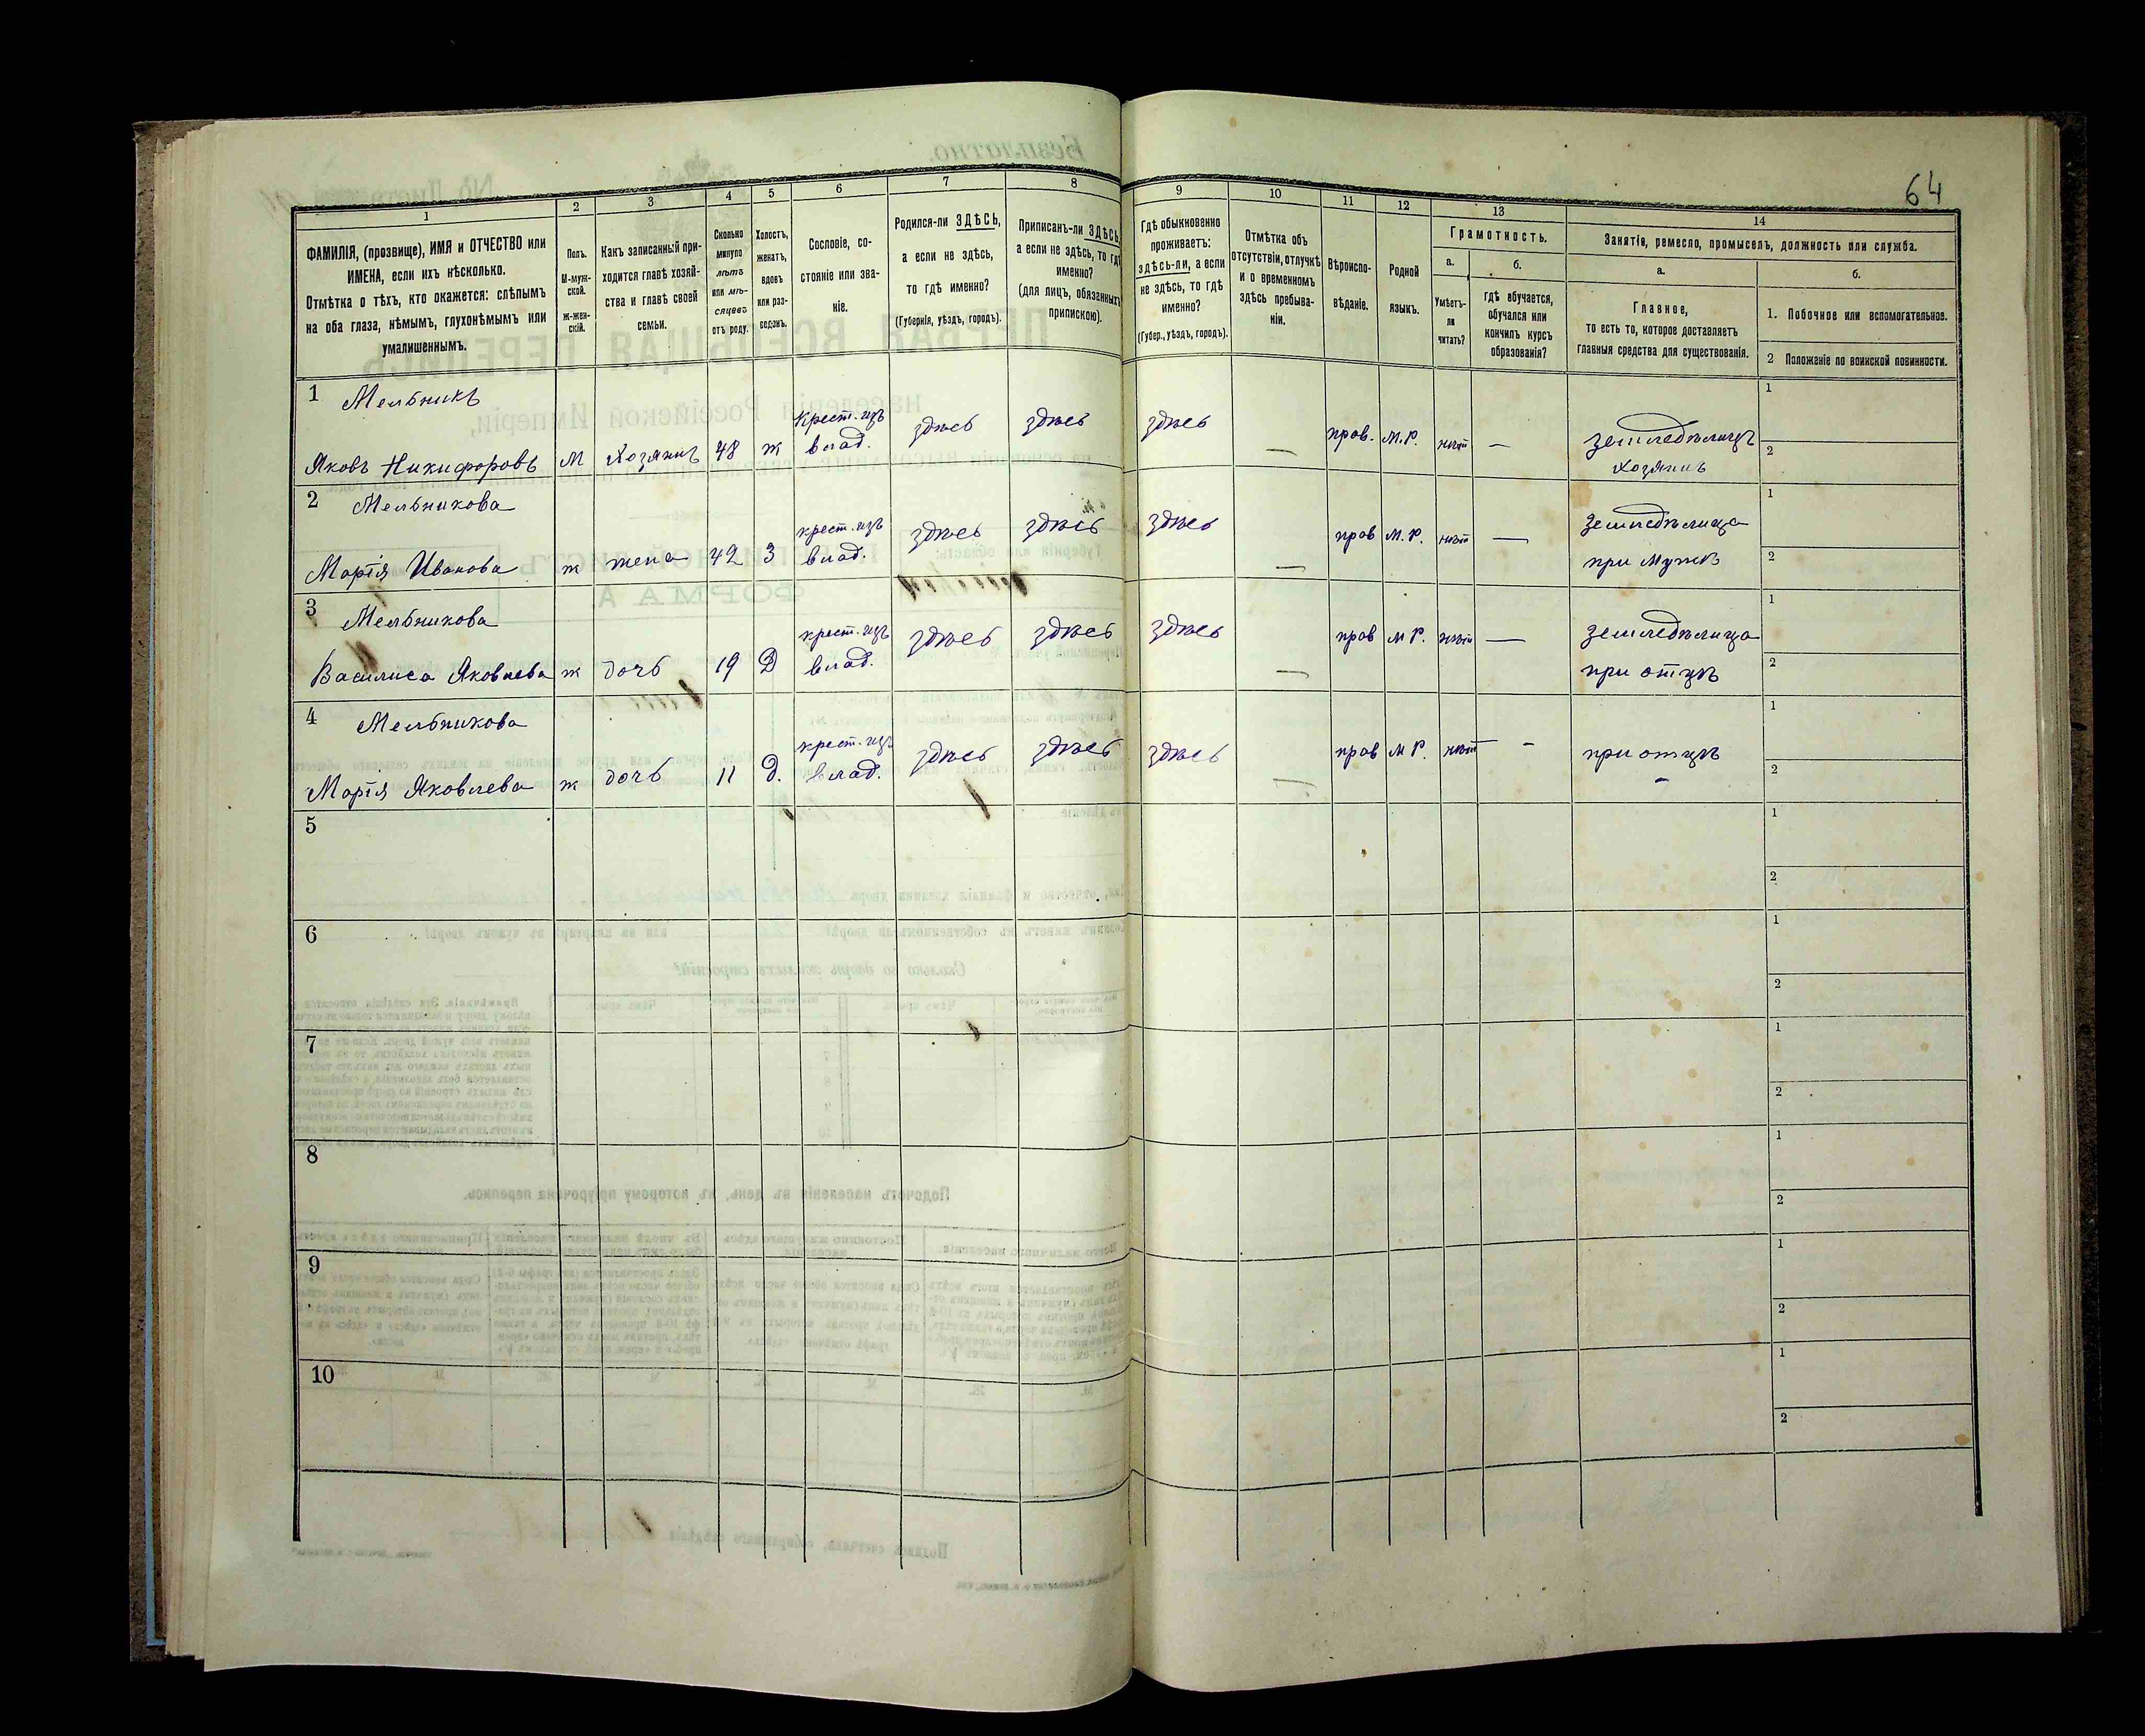 64
1
2
3
4
5
6
7
8
9
10
11
12
13
14
ФАМИЛІЯ, (прозвище), ИМЯ и ОТЧЕСТВО или
ИМЕНА, если ихъ нѣсколько.
Отмѣтка о тѣхъ, кто окажется: слѣпымъ
на оба глаза, нѣмымъ, глухонѣмымъ или
умалишеннымъ.
Полъ.
М-муж-
ской.
Ж-жен-
скій.
Какъ записанный при-
ходится главѣ хозяй-
ства и главѣ своей
семьи.
Сколько
минуло
лѣтъ
или мѣ-
сяцевъ
отъ роду.
Холостъ,
женатъ,
вдовъ
или раз-
веденъ.
Сословіе, со-
стояніе или зва-
ніе.
Родился-ли ЗДѢСЬ,
а если не здѣсь,
то гдѣ именно?
(Губернія, уѣздъ, городъ).
Приписанъ-ли ЗДѢСЬ,
а если не здѣсь, то гдѣ
именно?
(для лицъ, обязанныхъ
припискою).
Гдѣ обыкновенно
проживаетъ:
здѣсь-ли, а если
не здѣсь, то гдѣ
именно?
(Губер., уѣздъ, городъ).
Отмѣтка объ
отсутствіи, отлучкѣ
и о временномъ
здѣсь пребыва-
ніи.
Вѣроиспо-
вѣданіе.
Родной
языкъ.
Грамотность.
а.
Умѣетъ-
ли
читать?
б.
гдѣ обучается,
обучался или
кончилъ курсъ
образованія?
Занятіе, ремесло, промыселъ, должность или служба.
а.
Главное,
то есть то, которое доставляетъ
главныя средства для существованія.
б.
1. Побочное или вспомогательное.
2 Положеніе по воинской повинности.
1 Мельникъ
Яковъ Никифоровъ М Хозяинъ 48 ж Крест. изъ влад. здѣсь здѣсь здѣсь — прав. М.Р. нѣтъ — земледѣлецъ
хозяинъ
1
2
2 Мельникова
Марія Иванова ж жена 42 З крест. изъ влад. здѣсь здѣсь здѣсь — прав М.Р. нѣтъ — земледѣлица
при мужѣ
1
2
3 Мельникова
Василиса Яковлева ж дочь 19 Д крест. изъ влад. здѣсь здѣсь здѣсь — прав М Р. нѣтъ — земледѣлица
при отцѣ
1
2
4 Мельникова
Марія Яковлева ж дочь 11 д. крест. изъ влад. здѣсь здѣсь здѣсь — прав М Р. нѣтъ - при отцѣ
-
1
2
5
1
2
6
1
2
7
1
2
8
1
2
9
1
2
10
1
2